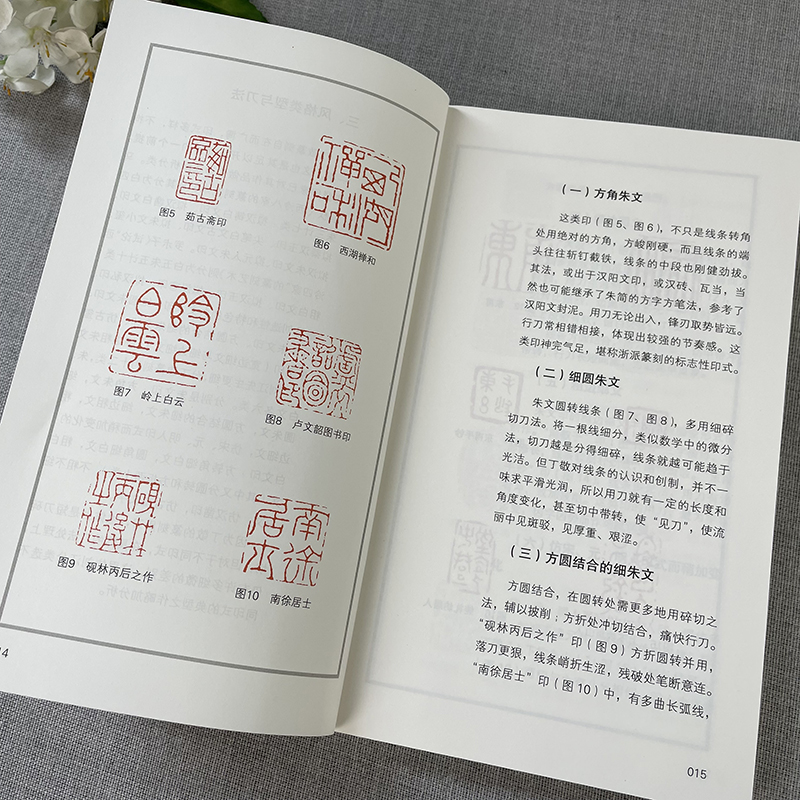 图5 茹古斋印
图6 西湖禅和
图7 岭上白云
图8 卢文韶图书印
图9 砚林丙后之作
图10 南徐居士
14
（一）方角朱文
这类印（图5、图6），不只是线条转角
处用绝对的方角，方峻刚硬，而且线条的端
头往往斩钉截铁，线条的中段也刚健劲拔。
其法，或出于汉阳文印，或汉砖、瓦当，当
然也可能继承了朱简的方字方笔法，参考了
汉阳文封泥。用刀无论出入，锋刃取势皆远。
行刀常相错相接，体现出较强的节奏感。这
类印神完气足，堪称浙派篆刻的标志性印式。
（二）细圆朱文
朱文圆转线条（图7、图8），多用细碎
切刀法。将一根线细分，类似数学中的微分
法，切刀越是分得细碎，线条就越可能趋于
光洁。但丁敬对线条的认识和创制，并不一
味求平滑光润，所以用刀就有一定的长度和
角度变化，甚至切中带转，使“见刀”，使流
丽中见斑驳，见厚重、艰涩。
（三）方圆结合的细朱文
方圆结合，在圆转处需更多地用碎切之
法，辅以披削；方折处冲切结合，痛快行刀。
“砚林丙后之作”印（图9）方折圆转并用，
落刀更狠，线条峭折生涩，残破处笔断意连。
“南徐居士”印（图10）中，有多曲长弧线，
015